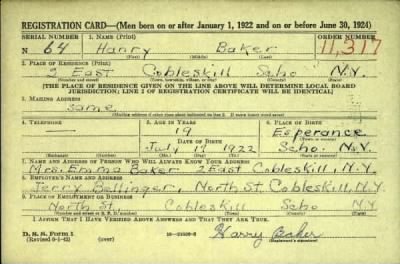 REGISTRATION CARD—(Men born on or after January 1, 1922 and on or before June 30, 1924)
SERIAL NUMBER 1. NAME (Print) ORDER NUMBER
N 64 Harry Baker 11,317
(First) (Middle) (Last)
2. PLACE OF RESIDENCE (Print)
2 East Cobleskill Scho N.Y.
(Number and street) (Town, township, village, or city) (County) (State)
[THE PLACE OF RESIDENCE GIVEN ON THE LINE ABOVE WILL DETERMINE LOCAL BOARD
JURISDICTION; LINE 2 OF REGISTRATION CERTIFICATE WILL BE IDENTICAL]
3. MAILING ADDRESS
Same
[Mailing address if other than place indicated on line 2. If same insert word same]
4. TELEPHONE 5. AGE IN YEARS 6. PLACE OF BIRTH
— 19 Esperance
DATE OF BIRTH
July 17 1922 Scho. N.Y.
7. NAME AND ADDRESS OF PERSON WHO WILL ALWAYS KNOW YOUR ADDRESS
Mrs. Emma Baker 2 East Cobleskill, N.Y.
8. EMPLOYER'S NAME AND ADDRESS
Jerry Bellinger, North St. Cobleskill, N.Y.
9. PLACE OF EMPLOYMENT OR BUSINESS
North St. Cobleskill Scho N.Y.
(Number and street or R. F. D. number) (Town) (County) (State)
I AFFIRM THAT I HAVE VERIFIED ABOVE ANSWERS AND THAT THEY ARE TRUE.
D. S. S. Form 1
Harry Baker
(Registrant's signature)